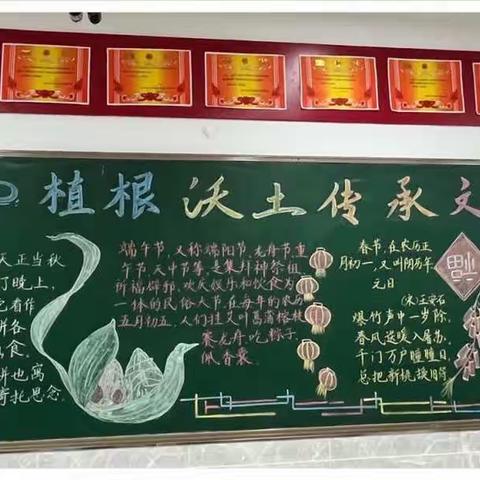 植根沃土传承文
天正当秋
晚上,
它看作
饼各
食.
饼也寓
寄托思念.
端午节,又称端阳节、龙舟节、重
午节、天中节等,是集拜神祭祖
祈福辟邪、欢庆娱乐和饮食为
一体的民俗大节,在每年的农历
五月初五,人们挂艾叶菖蒲榕枝
赛龙舟吃粽子
佩香囊.
春节,在农历正
月初一,又叫阴历年
元日
(宋)王安石
爆竹声中一岁除,
春风送暖入屠苏.
千门万户曈曈日,
总把新桃换旧符
福